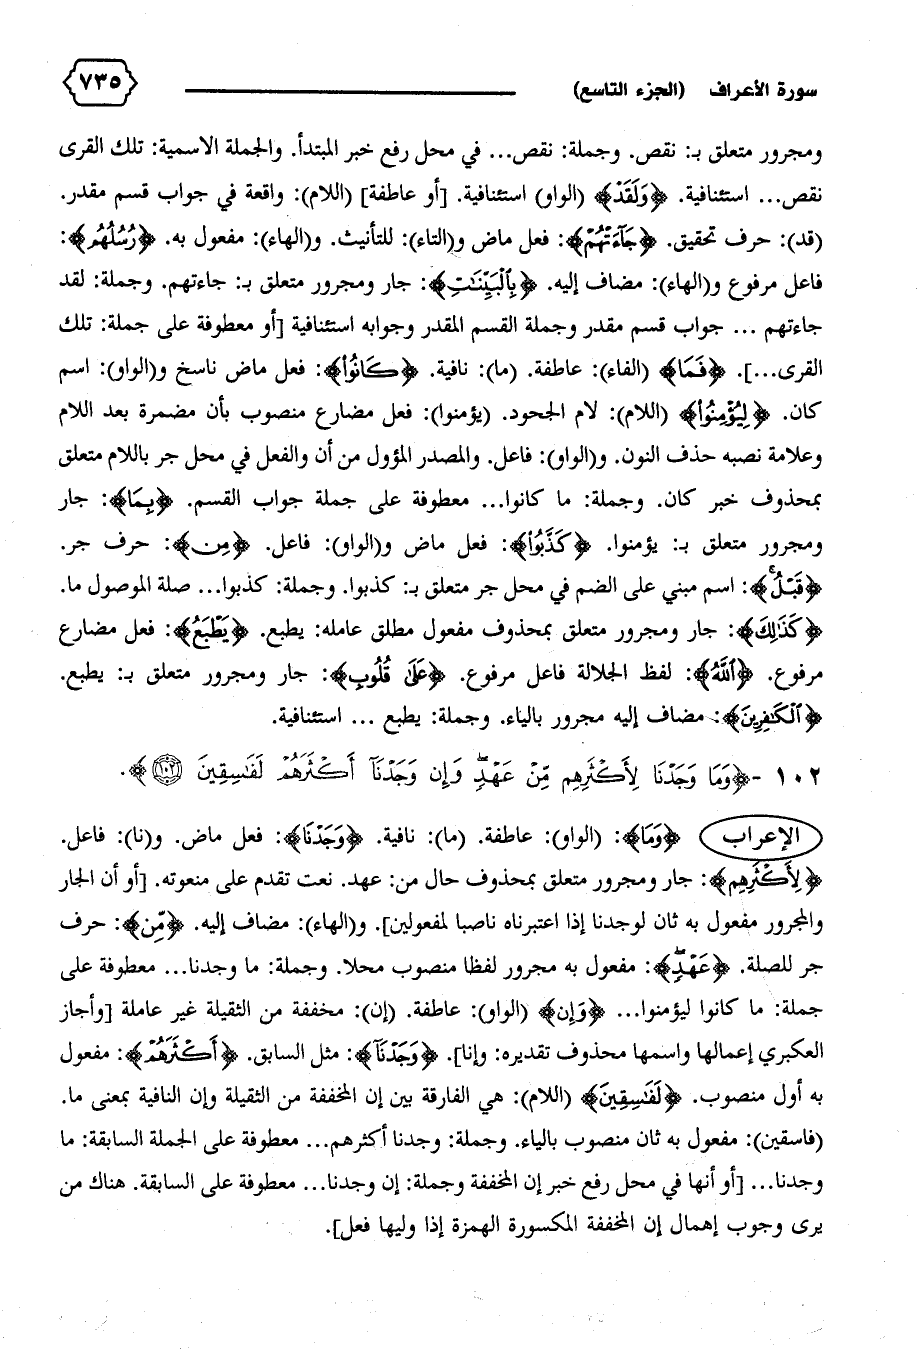 سورة الأعراف (الجزء التاسع) ٧٣٥
ومجرور متعلق بـ: نقص. وجملة: نقص... في محل رفع خبر المبتدأ. والجملة الاسمية: تلك القرى
نقص... استئنافية. ﴿وَلَقَدْ﴾ (الواو) استئنافية. [أو عاطفة] (اللام): واقعة في جواب قسم مقدر.
(قد): حرف تحقيق. ﴿جَآءَتْهُمْ﴾: فعل ماض و(التاء): للتأنيث. و(الهاء): مفعول به. ﴿رُسُلُهُم﴾:
فاعل مرفوع و(الهاء): مضاف إليه. ﴿بِٱلْبَيِّنَٰتِ﴾: جار ومجرور متعلق بـ: جاءتهم. وجملة: لقد
جاءتهم ... جواب قسم مقدر وجملة القسم المقدر وجوابه استئنافية [أو معطوفة على جملة: تلك
القرى...]. ﴿فَمَا﴾ (الفاء): عاطفة. (ما): نافية. ﴿كَانُوا۟﴾: فعل ماض ناسخ و(الواو): اسم
كان. ﴿لِيُؤْمِنُوا۟﴾ (اللام): لام الجحود. (يؤمنوا): فعل مضارع منصوب بأن مضمرة بعد اللام
وعلامة نصبه حذف النون. و(الواو): فاعل. والمصدر المؤول من أن والفعل في محل جر باللام متعلق
بمحذوف خبر كان. وجملة: ما كانوا... معطوفة على جملة جواب القسم. ﴿بِمَا﴾: جار
ومجرور متعلق بـ: يؤمنوا. ﴿كَذَّبُوا۟﴾: فعل ماض و(الواو): فاعل. ﴿مِن﴾: حرف جر.
﴿قَبْلُ ۚ﴾: اسم مبني على الضم في محل جر متعلق بـ: كذبوا. وجملة: كذبوا... صلة الموصول ما.
﴿كَذَٰلِكَ﴾: جار ومجرور متعلق بمحذوف مفعول مطلق عامله: يطبع. ﴿يَطْبَعُ﴾: فعل مضارع
مرفوع. ﴿ٱللَّهُ﴾: لفظ الجلالة فاعل مرفوع. ﴿عَلَىٰ قُلُوبِ﴾: جار ومجرور متعلق بـ: يطبع.
﴿ٱلْكَٰفِرِينَ﴾: مضاف إليه مجرور بالياء. وجملة: يطبع ... استئنافية.
١٠٢ - ﴿وَمَا وَجَدْنَا لِأَكْثَرِهِم مِّنْ عَهْدٍ ۖ وَإِن وَجَدْنَآ أَكْثَرَهُمْ لَفَٰسِقِينَ ۝١٠٢﴾.
الإعراب ﴿وَمَا﴾: (الواو): عاطفة. (ما): نافية. ﴿وَجَدْنَا﴾: فعل ماض. و(نا): فاعل.
﴿لِأَكْثَرِهِم﴾: جار ومجرور متعلق بمحذوف حال من: عهد. نعت تقدم على منعوته. [أو أن الجار
والمجرور مفعول به ثان لوجدنا إذا اعتبرناه ناصبا لمفعولين]. و(الهاء): مضاف إليه. ﴿مِّنْ﴾: حرف
جر للصلة. ﴿عَهْدٍ ۖ﴾: مفعول به مجرور لفظا منصوب محلا. وجملة: ما وجدنا... معطوفة على
جملة: ما كانوا ليؤمنوا... ﴿وَإِن﴾ (الواو): عاطفة. (إن): مخففة من الثقيلة غير عاملة [وأجاز
العكبري إعمالها واسمها محذوف تقديره: وإنا]. ﴿وَجَدْنَآ﴾: مثل السابق. ﴿أَكْثَرَهُمْ﴾: مفعول
به أول منصوب. ﴿لَفَٰسِقِينَ﴾ (اللام): هي الفارقة بين إن المخففة من الثقيلة وإن النافية بمعنى ما.
(فاسقين): مفعول به ثان منصوب بالياء. وجملة: وجدنا أكثرهم... معطوفة على الجملة السابقة: ما
وجدنا... [أو أنها في محل رفع خبر إن المخففة وجملة: إن وجدنا... معطوفة على السابقة. هناك من
يرى وجوب إهمال إن المخففة المكسورة الهمزة إذا وليها فعل].